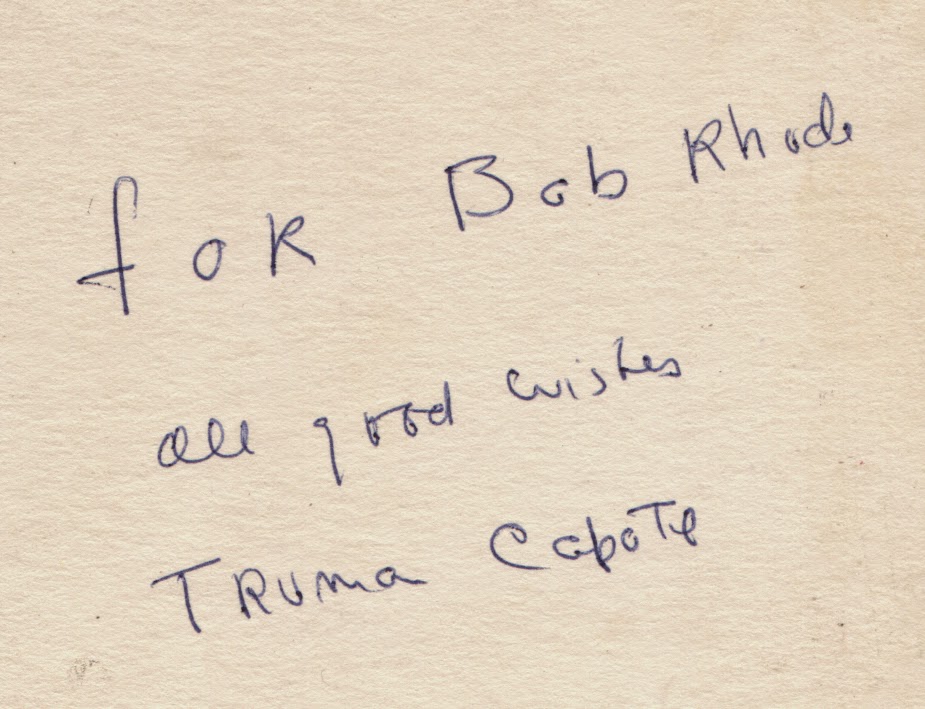 for Bob Rhode
all good wishes
Truma Capote